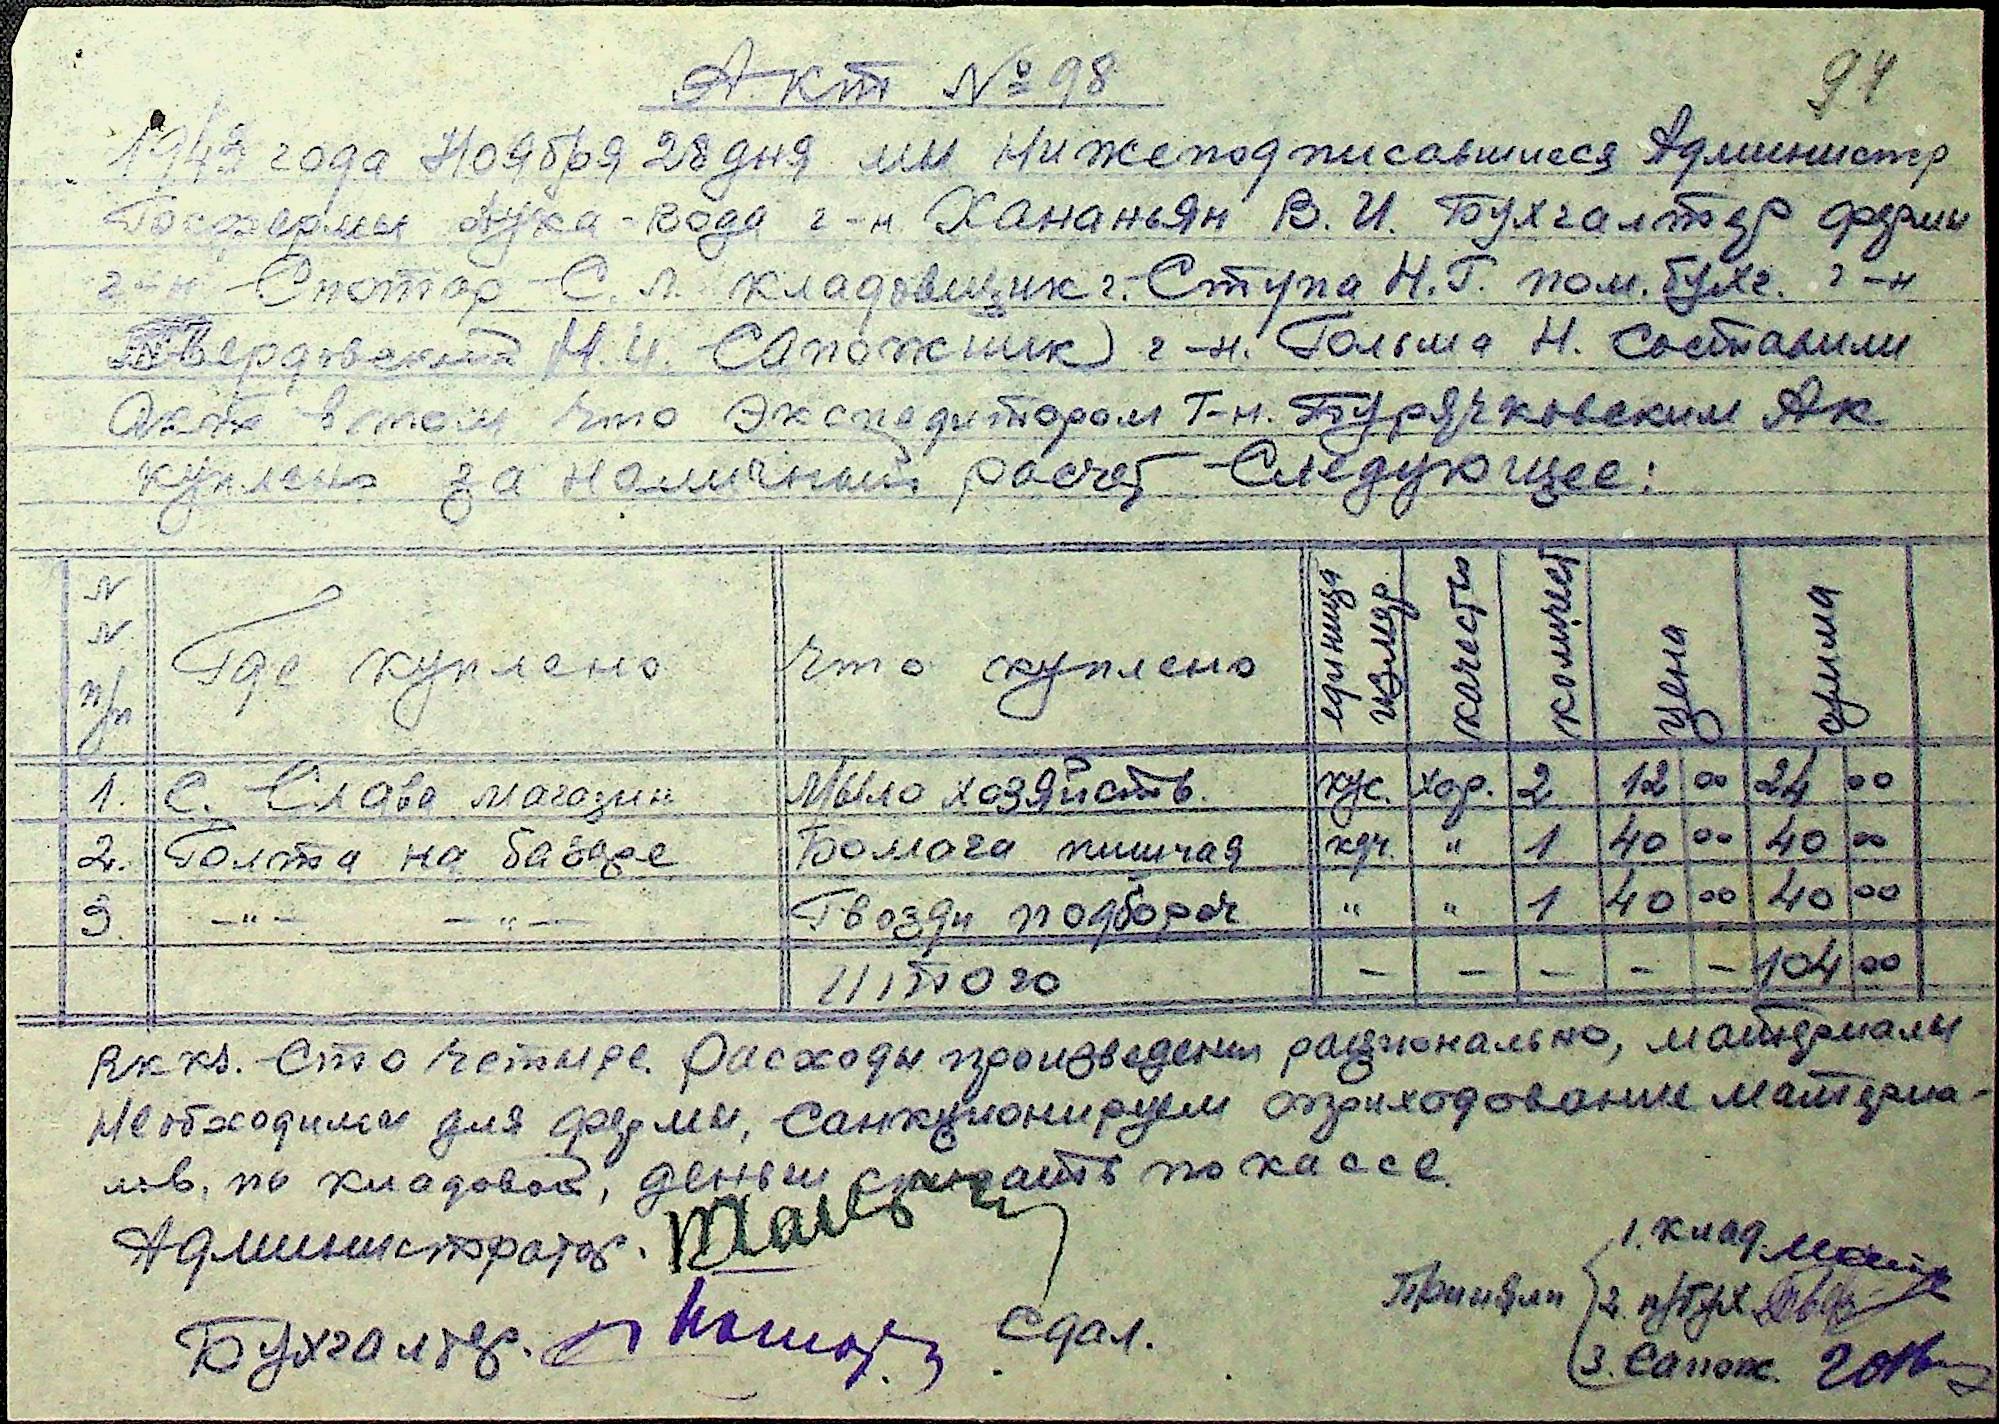 Акт № 98
94
1943 года Ноября 28 дня мы Нижеподписавшиеся Администр
Госфермы Лука-Вода г-н Хананьян В. И. Бухгалтер фермы
г-н Снотар С. Л. кладовщик г. Ступа Н. Г. пом. бухг. г-н
Твердовский Н. И. Сапожник) г-н. Гольма Н. Составили
Акт в том Что Экспедитором Г-н. Бурячковским Ак
куплено за наличный расчет Следующее:
N N п/п | Где куплено | Что куплено | единица измер. | качество | количест | цена | сумма
1. | С. Слава магазин | Мыло хозяйств. | кус. | хор. | 2 | 12 00 | 24 00
2. | Голта на базаре | Бомага пишчая | кгч. | " | 1 | 40 00 | 40 00
3. | —"— —"— | Гвозди подбороч | " | " | 1 | 40 00 | 40 00
Итого | – | – | – | – – | 104 00
Rккs. Сто Четыре. Расходы произведены рационально, материалы
Необходимы для фермы, Санкционируем оприходование материа-
лов, по кладовой, деньги списать по кассе.
Администратор.
Бухгалтер. Сдал.
Приняли
1. Клад.
2. п/бух. Твер
3. Сапож.